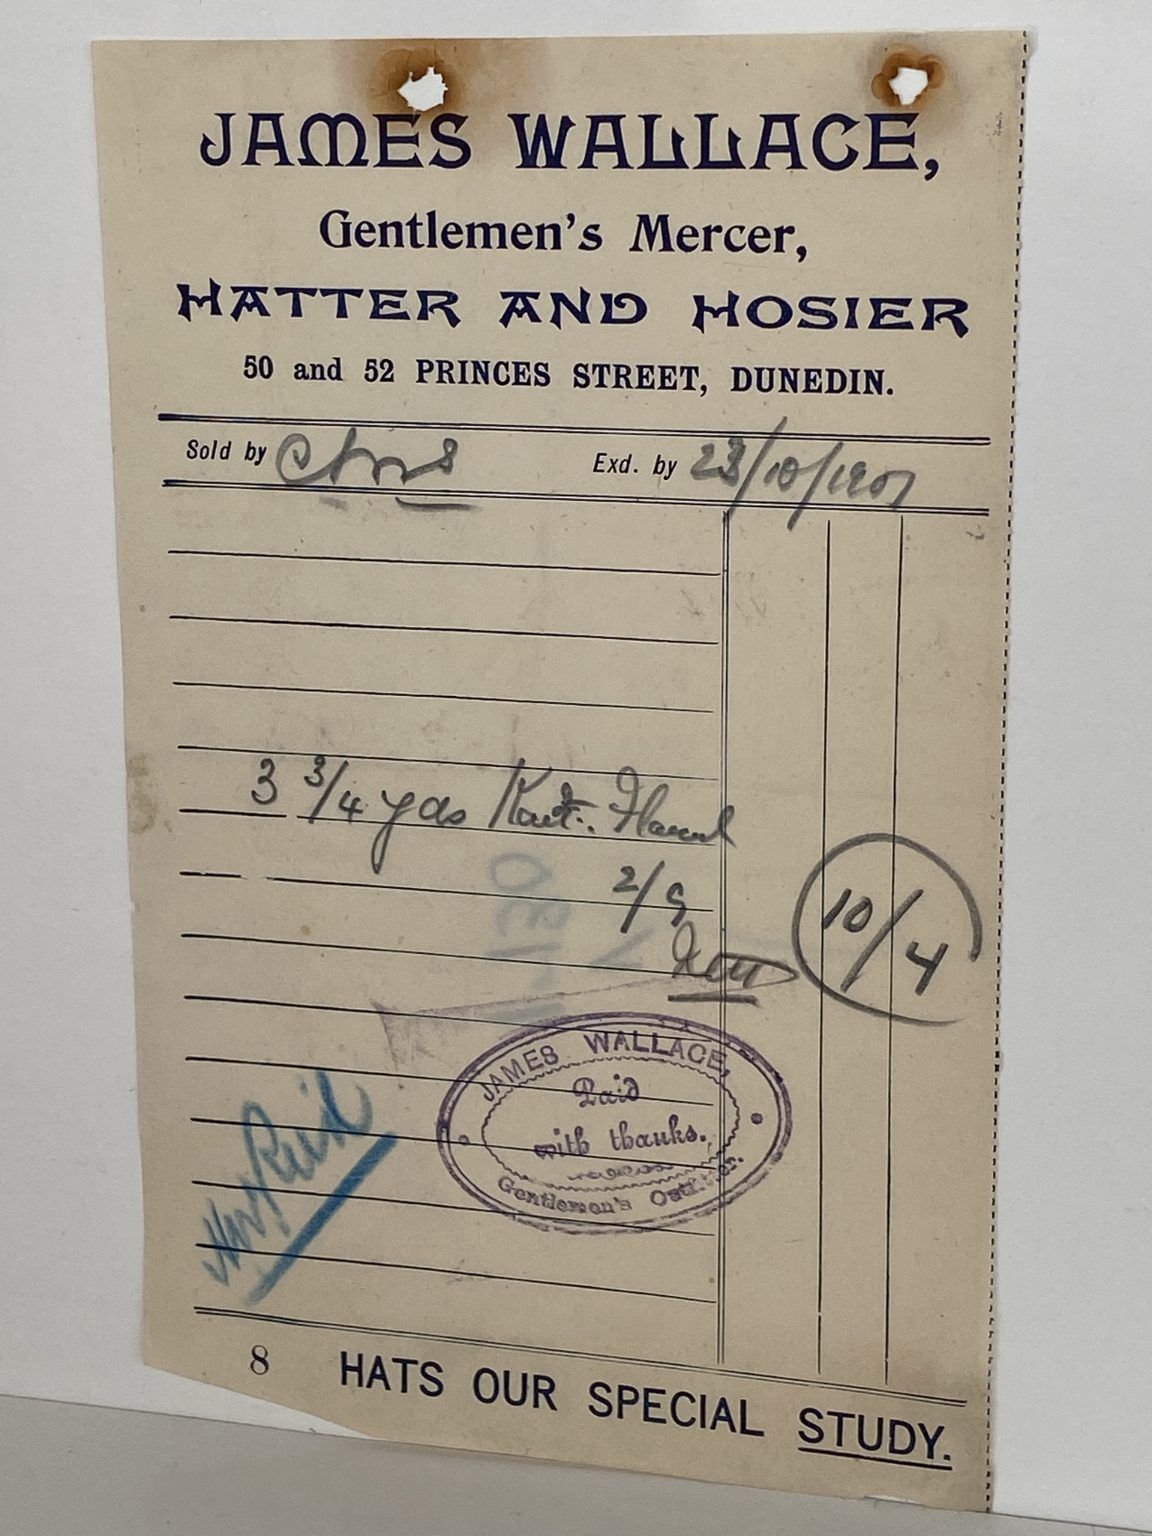 JAMES WALLACE,
Gentlemen's Mercer,
HATTER AND HOSIER
50 and 52 PRINCES STREET, DUNEDIN.
Sold by Exd. by 23/10/1907
3 3/4 yds
2/9
10/4
JAMES WALLACE,
Paid
with thanks.
Gentlemen's
Paid
8 HATS OUR SPECIAL STUDY.